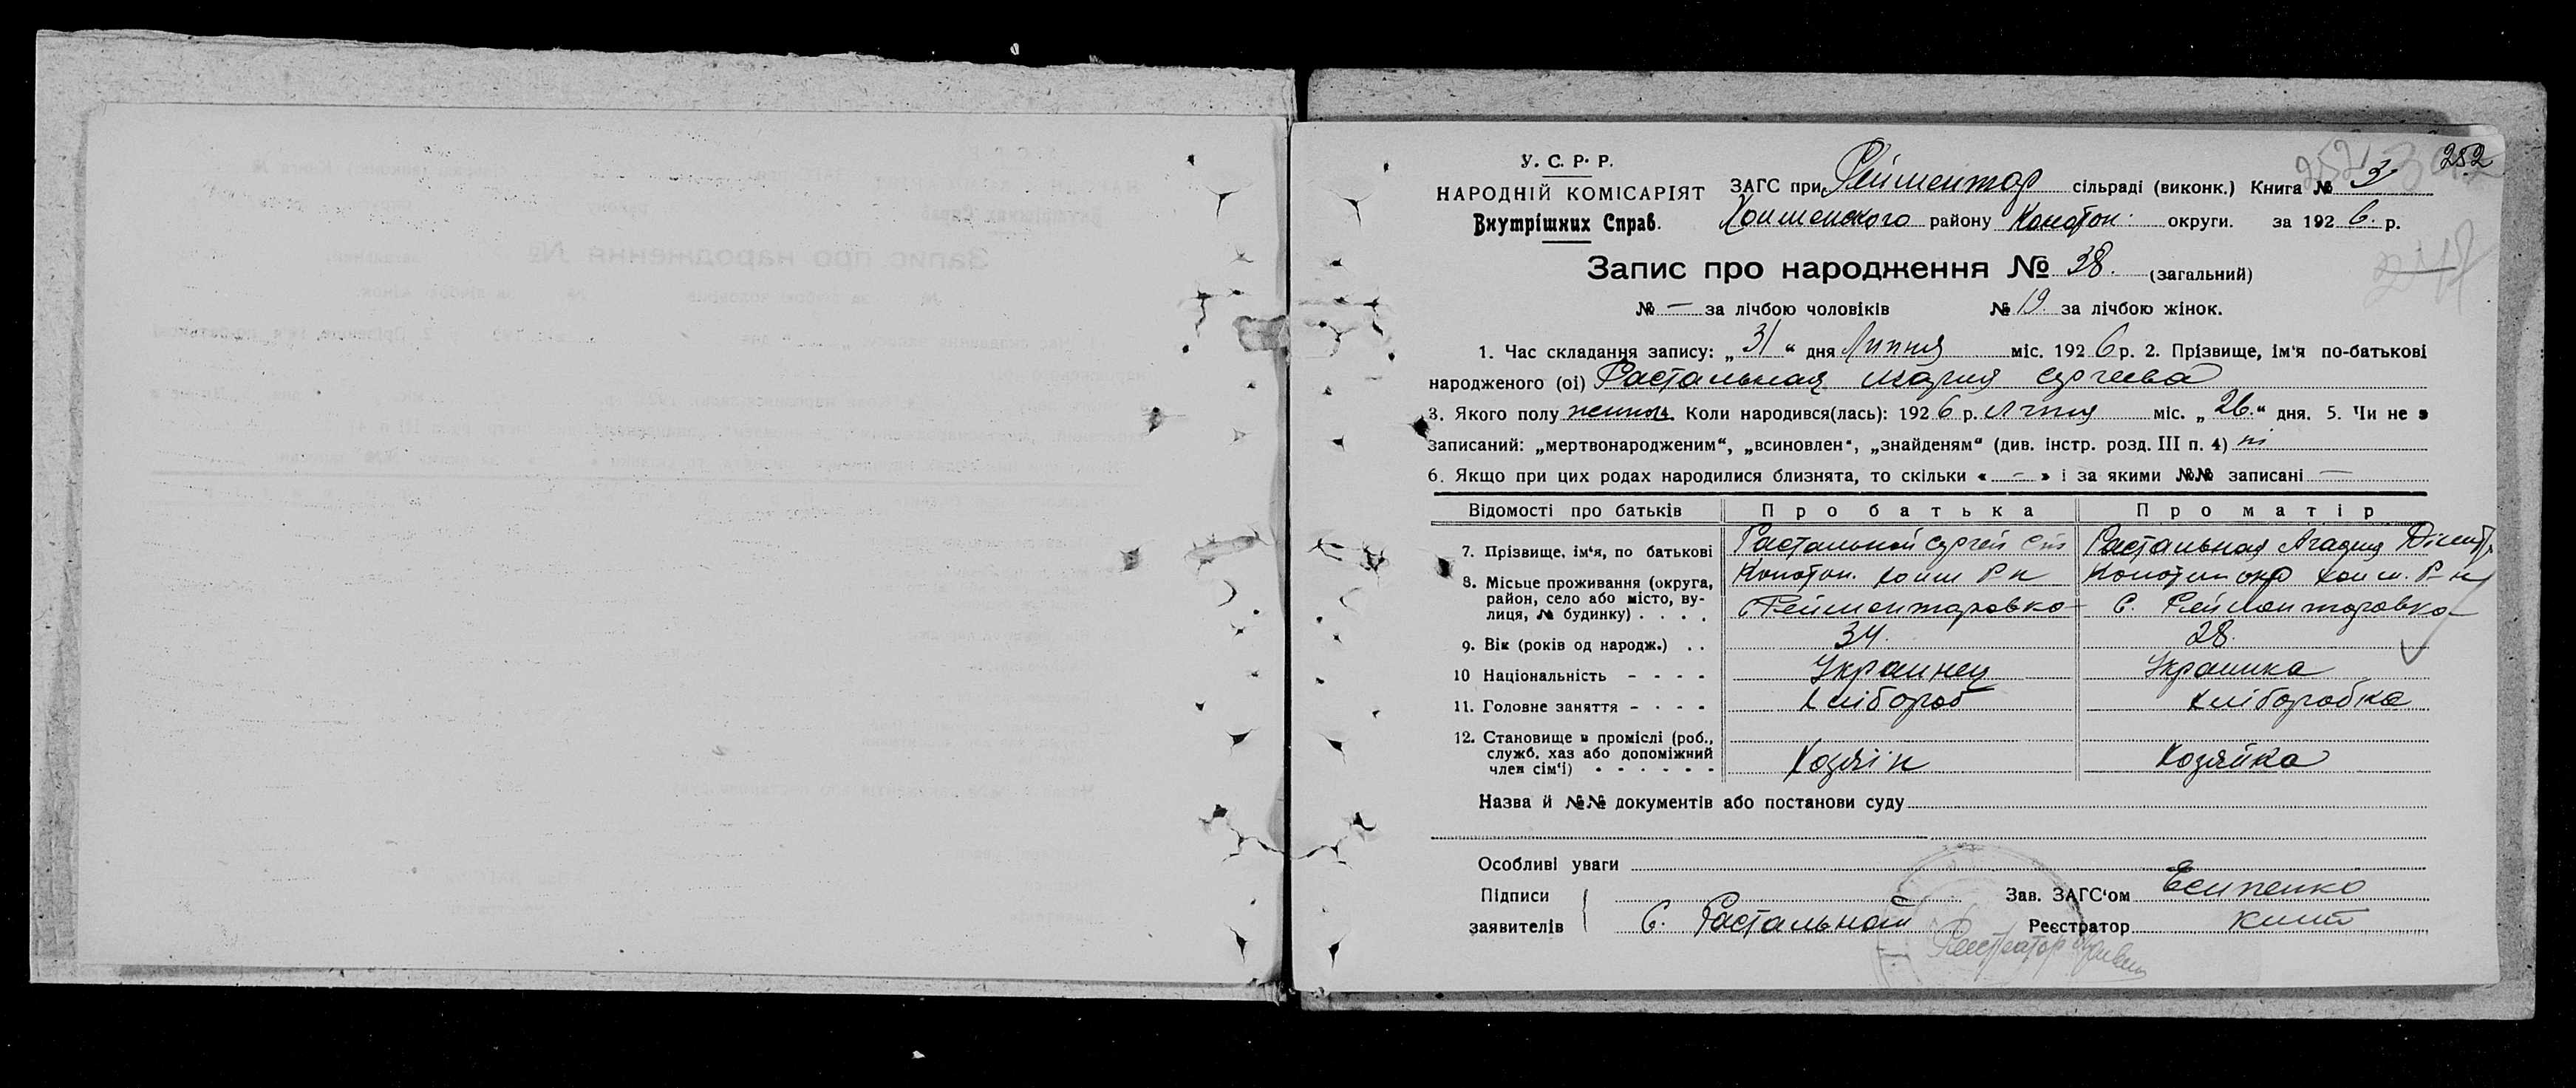 252
У. С. Р. Р.
НАРОДНІЙ КОМІСАРІЯТ
Внутрішних Справ.
ЗАГС при Рейментар сільраді (виконк.) Книга № 3
району Конотоп. округи. за 1926. р.
Запис про народження № 38. (загальний)
№ — за лічбою чоловіків № 19. за лічбою жінок.
1. Час складання запису: „31“ дня Липня міс. 1926 р. 2. Прізвище, ім‘я по-батькові
народженого (ої) Растальная Мария Сергеева
3. Якого полу Коли народився(лась): 1926 р. Липня міс. „26.“ дня. 5. Чи не з
записаний: „мертвонародженим“, „всиновлен“, „знайденям“ (див. інстр. розд. III п. 4) ні
6. Якщо при цих родах народилися близнята, то скільки « — » і за якими №№ записані —
Відомості про батьків Про батька Про матір
7. Прізвище, ім‘я, по батькові Растальной Сергей Растальная Агафия
8. Місьце проживання (округа, район, село або місто, вулиця, № будинку) . . . .
Конотоп. хоим р-н Конотоп окр хоим. р-н
с Рейментаровка с. Рейментаровка
9. Вік (років од народж.) . . 34. 28.
10 Національність - - - - Украинец Украинка
11. Головне заняття - - - - Хлібороб Хліборобка
12. Становище в промислі (роб., служб. хаз або допоміжний член сім‘ї) - - - - - - Хозяін Хозяйка
Назва й №№ документів або постанови суду
Особливі уваги
Підписи
заявителів С. Растальной
Зав. ЗАГС‘ом Есипенко
Реєстратор